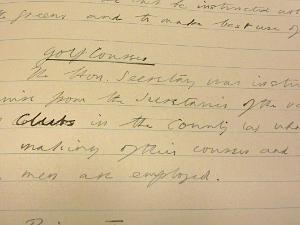 be instructed not
the greens and to make best use of
Golf Courses
The Hon. Secretary was instru
from the Secretaries of the va
Clubs in the County as
making of their courses and
men are employed.